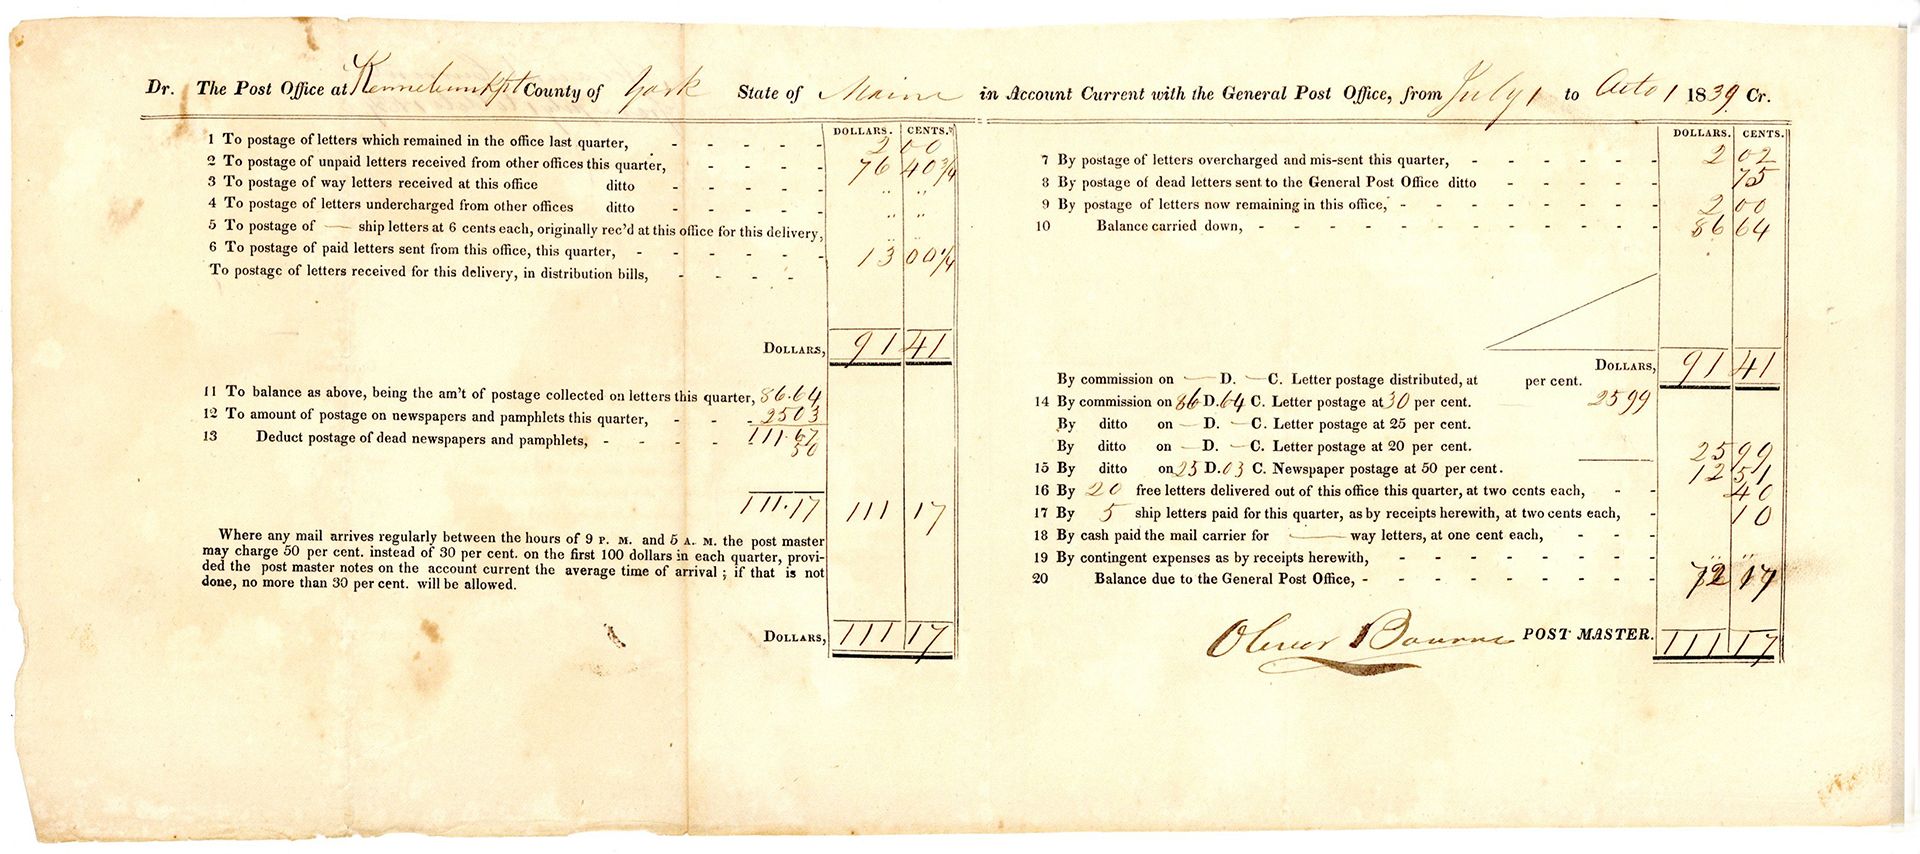 Dr. The Post Office at Kennebunkpt County of York State of Maine in Account Current with the General Post Office, from July 1 to Octo 1 1839 Cr.
DOLLARS. CENTS.
1 To postage of letters which remained in the office last quarter, 2 00
2 To postage of unpaid letters received from other offices this quarter, 76 40 3/4
3 To postage of way letters received at this office ditto " "
4 To postage of letters undercharged from other offices ditto " "
5 To postage of — ship letters at 6 cents each, originally rec'd at this office for this delivery, " "
6 To postage of paid letters sent from this office, this quarter, 13 00 1/4
To postage of letters received for this delivery, in distribution bills,
DOLLARS, 91 41
11 To balance as above, being the am't of postage collected on letters this quarter, 86.64
12 To amount of postage on newspapers and pamphlets this quarter, 25 03
111.67
13 Deduct postage of dead newspapers and pamphlets, 50
111.17 111 17
Where any mail arrives regularly between the hours of 9 P. M. and 5 A. M. the post master
may charge 50 per cent. instead of 30 per cent. on the first 100 dollars in each quarter, provi-
ded the post master notes on the account current the average time of arrival ; if that is not
done, no more than 30 per cent. will be allowed.
DOLLARS, 111 17
DOLLARS. CENTS.
7 By postage of letters overcharged and mis-sent this quarter, 2 02
8 By postage of dead letters sent to the General Post Office ditto 75
9 By postage of letters now remaining in this office, 2 00
10 Balance carried down, 86 64
DOLLARS, 91 41
By commission on — D. — C. Letter postage distributed, at per cent.
14 By commission on 86 D. 64 C. Letter postage at 30 per cent. 25 99
By ditto on — D. — C. Letter postage at 25 per cent.
By ditto on — D. — C. Letter postage at 20 per cent. 25 99
15 By ditto on 25 D. 03 C. Newspaper postage at 50 per cent. 12 51
16 By 20 free letters delivered out of this office this quarter, at two cents each, 40
17 By 5 ship letters paid for this quarter, as by receipts herewith, at two cents each, 10
18 By cash paid the mail carrier for — way letters, at one cent each,
19 By contingent expenses as by receipts herewith, " "
20 Balance due to the General Post Office, 72 17
Oliver Bourne POST MASTER. 111 17